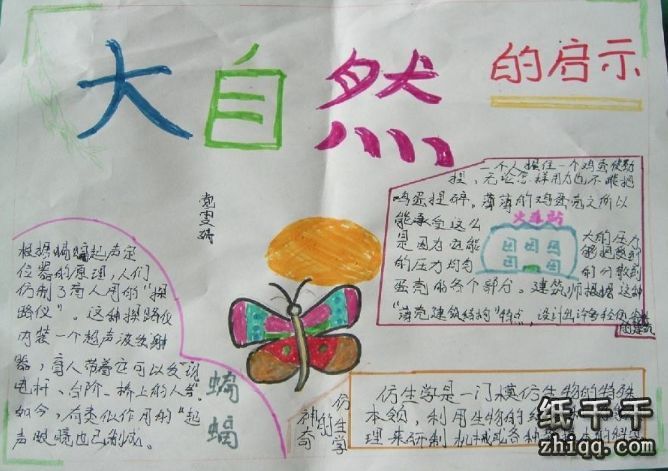 大自然
的启示
一个人握住一个鸡蛋使劲
捏，无论怎样用力也不能把
鸡蛋捏碎。薄薄的鸡蛋壳之所以
能承受这么大的压力
是因为它能够把受到
的压力均匀的分散到
蛋壳的各个部分。建筑师根据这种
"薄壳建筑结构"特点，设计出许多
的建筑
火车站
根据蝙蝠超声定
位器的原理，人们
仿制了盲人用的"探
路仪"。这种探路仪
内装一个超声波发射
器，盲人带着它可以发现
电杆、台阶、桥上的人等。
如今，有类似作用的"超
声眼镜也已制成。
蝙蝠
神奇的仿生学
仿生学是一门模仿生物的特殊
本领，利用生物的
理来研制机械或各种
纸千千
zhiqq.com